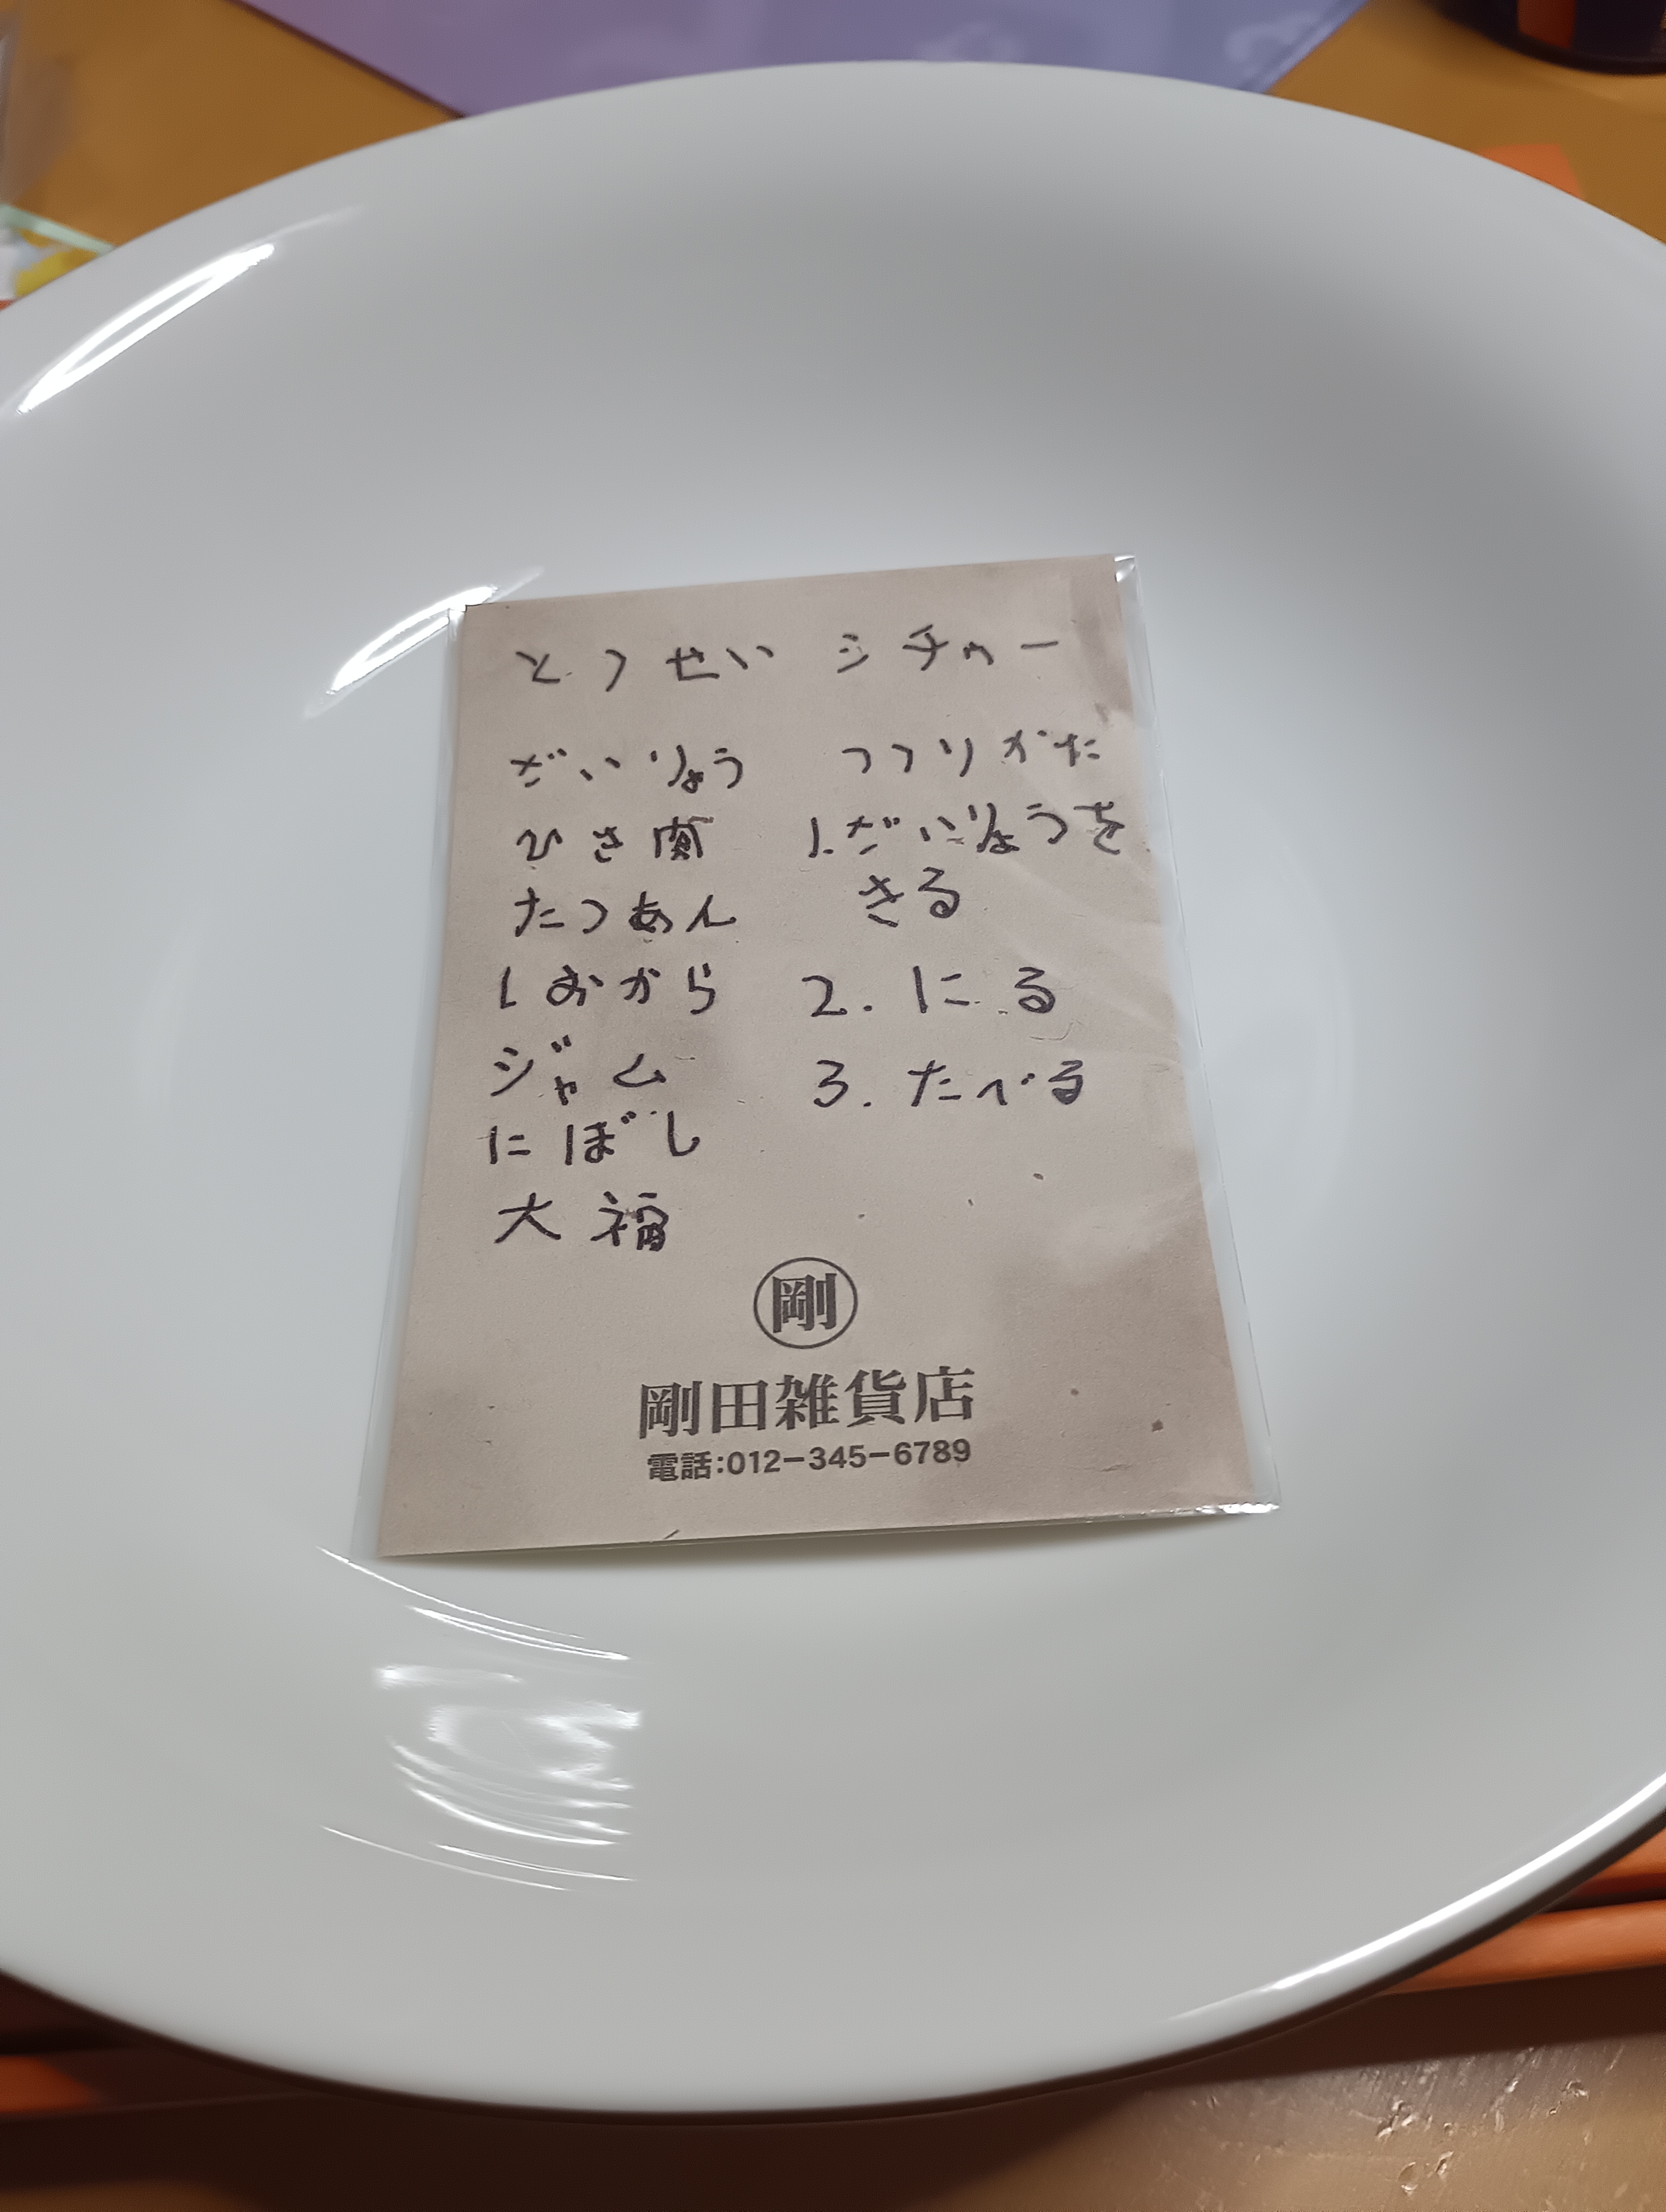 とつせい シチュー
ざいりょう
ひき肉
たつあん
しおから
ジャム
にぼし
大福
つつりかた
1.ざいりょうを
きる
2.にる
3.たべる
剛
剛田雑貨店
電話:012-345-6789